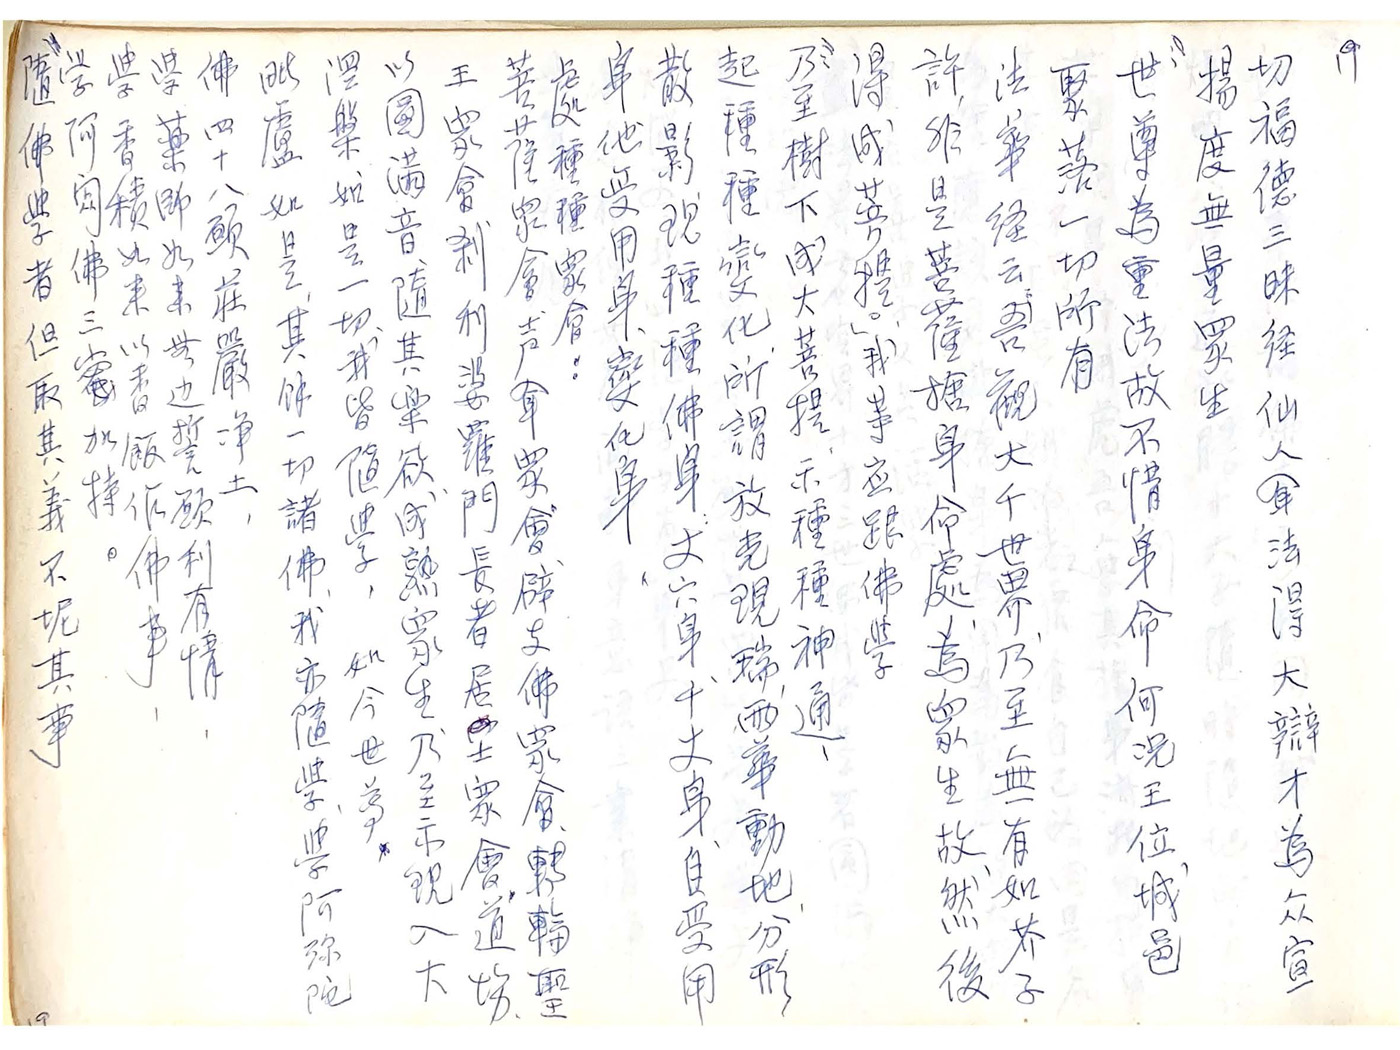 19
切福德三昧经仙人拿法得大辯才為众宣
揚度無量眾生
世尊為重法故不惜身命何況王位、城邑
聚落一切所有
法華经云：「吾觀大千世界、乃至無有如芥子
許、非是菩薩捨身命處、為眾生故、然後
得成菩提。」我等应跟佛学
乃至樹下成大菩提、示種種神通、
起種種變化、所謂放光現瑞、雨華動地、分形
散影、現種種佛身：丈六身、千丈身、自受用
身、他受用身、變化身
处處種種眾會：
菩薩眾會、声聞眾會、辟支佛眾會、轉輪聖
王眾會、剎利婆羅門長者居士眾會、道场、
以圓滿音、隨其樂欲、成熟眾生、乃至示現入大
涅槃、如是一切、我皆隨学， 如今世尊
毗盧如是、其餘一切諸佛、我亦隨学、学阿弥陀
佛四十八願莊嚴净土，
学藥師如来無边誓願利有情，
学香積如来以香飯作佛事，
学阿閦佛三密加持。
隨佛学者但取其義不坭其事
19